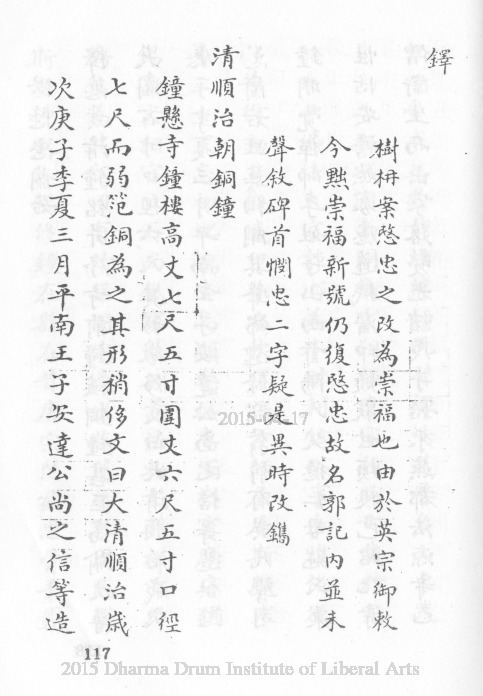 鐸
樹枏案愍忠之改為崇福也由於英宗御敕
今黜崇福新號仍復愍忠故名郭記内並未
聲敘碑首憫忠二字疑是異時改鐫
清順治朝銅鐘
鐘懸寺鐘樓高丈七尺五寸圍丈六尺五寸口徑
七尺而弱笵銅為之其形稍侈文曰大清順治歲
次庚子季夏三月平南王子安達公尚之信等造
117
2015-04-17
2015 Dharma Drum Institute of Liberal Arts